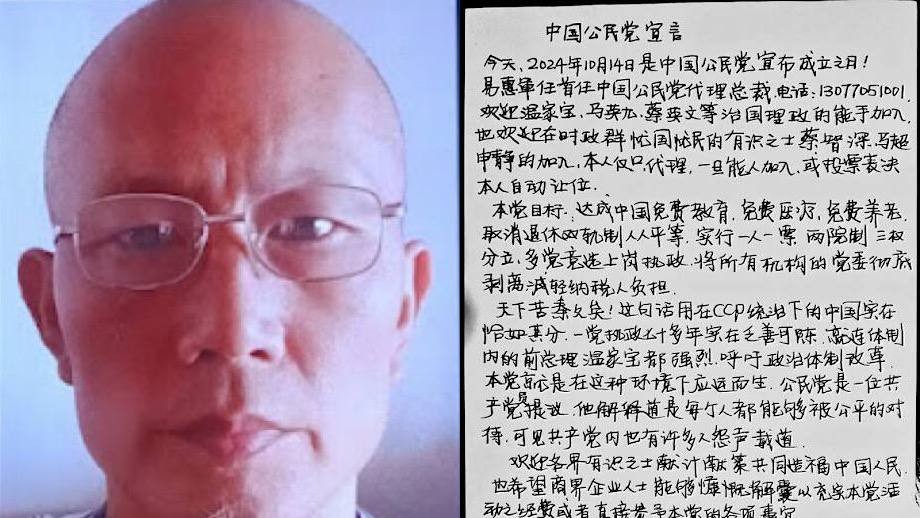 中国公民党宣言
今天,2024年10月14日是中国公民党宣布成立之日!
易惠军任首任中国公民党代理总裁电话:13077051001.
欢迎温家宝,马英九,蔡英文等治国理政的能手加入,
也欢迎在时政群忧国忧民的有识之士蔡智深,马超
申静的加入,本人仅只代理,一旦能人加入,或投票表决
本人自动让位.
本党目标:达成中国免费教育,免费医疗,免费养老.
取消退休双轨制人人平等.实行一人一票 两院制 三权
分立,多党竞选上岗执政,将所有机构的党委彻底
剥离减轻纳税人负担.
天下苦秦久矣!这句话用在CCP统治下的中国实在
恰如其分.一党执政七十多年实在乏善可陈,
内的前总理温家宝都强烈呼吁政治体制改革.
本党就是在这种环境下应运而生.公民党是一位共
产党员提议.他解释道是每个人都能够被公平的对
待,可见共产党内也有许多人怨声载道.
欢迎各界有识之士献计献策共同造福中国人民.
也希望商界企业人士能够慷慨解囊以充实本党活
动之经费或者直接参与本党的各项事宜